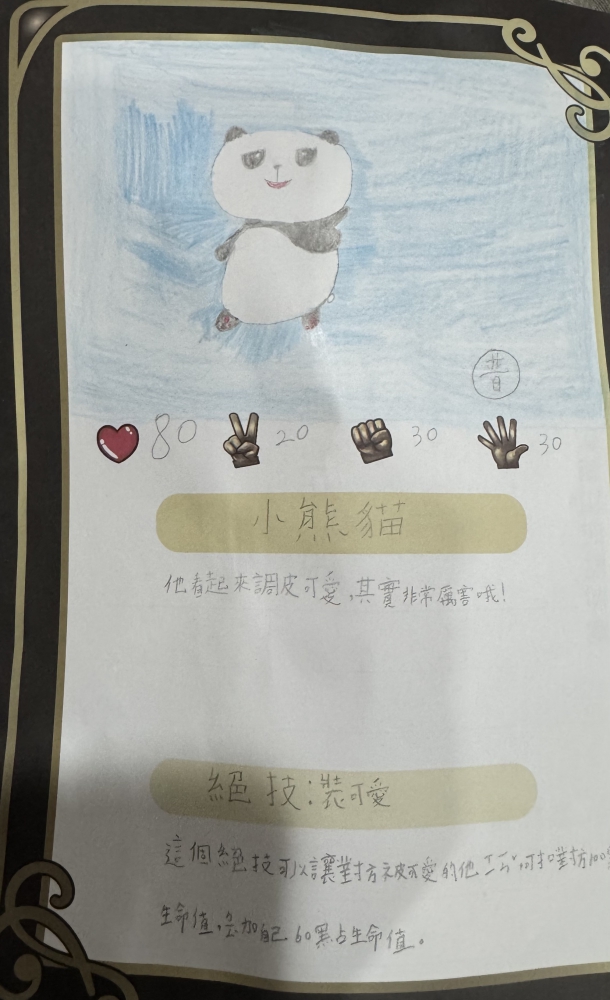 普
80 20 30 30
小熊貓
他看起來調皮可愛,其實非常厲害哦!
絕技:裝可愛
這個絕技可以讓對方被可愛的他ㄒㄧ ˋ,可扣對方100
生命值,加自己60點生命值。